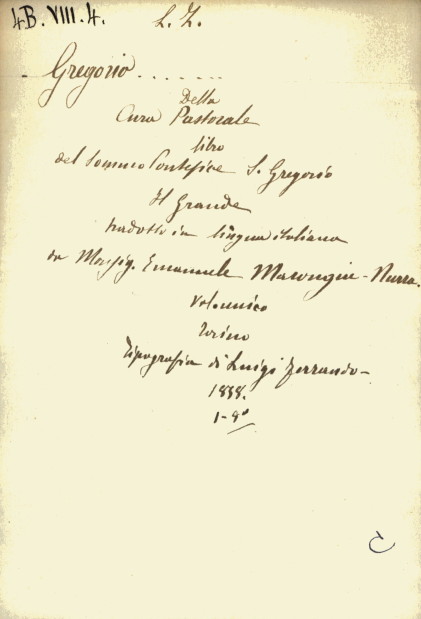 4B. VIII. 4. L. Z.
Gregorio .......
Della
Cura Pastorale
libro
del Sommo Pontefice S. Gregorio
Il Grande
tradotto in lingua italiana
da Monsig. Emanuele Marongiu-Nurra.
Vol. unico
Torino
Tipografia di Luigi Ferrando-
1-8º
C